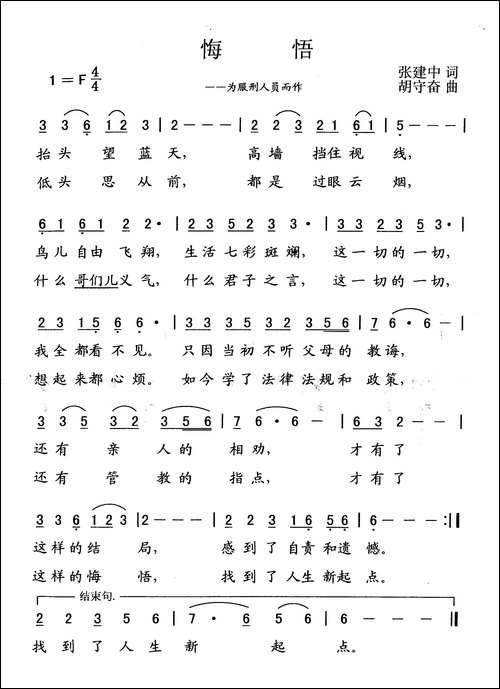 悔 悟
1=F 4/4
——为服刑人员而作
张建中 词
胡守奋 曲
3 3 6 1 2 3 | 2 - - - | 2 2 3 2 1 6 1 | 5 - - - |
抬头 望蓝天, 高墙 挡住视 线,
低头 思从前, 都是 过眼云 烟,
6 1 6 1 2 2· | 2 3 5 2 3 3· | 3 3 2 3 5 3· |
鸟儿自由飞翔, 生活七彩斑斓, 这一切的一切,
什么哥们儿义气, 什么君子之言, 这一切的一切,
2 3 1 5 6 6· | 3 3 3 5 3 2 3 5 6 | 7 6· 6 - |
我全都看不见。 只因当初不听父母的 教诲,
想起来都心烦。 如今学了法律法规和 政策,
3 2 3 2 3 5 6 | 7 6· 6 - | 6 3 2 - - |
还有 亲 人的 相劝, 才有了
还有 管 教的 指点, 才有了
3 3 6 1 2 3 | 2 - - - | 2 2 3 1 6 5 6 | 6 - - - :||
这样的结 局, 感到了自责和遗 憾。
这样的悔 悟, 找到了人生新起 点。
结束句.
2 2 3 5 | 7 6 5 6 | 6 - - - | 6 - - - ||
找到了人生新 起 点。